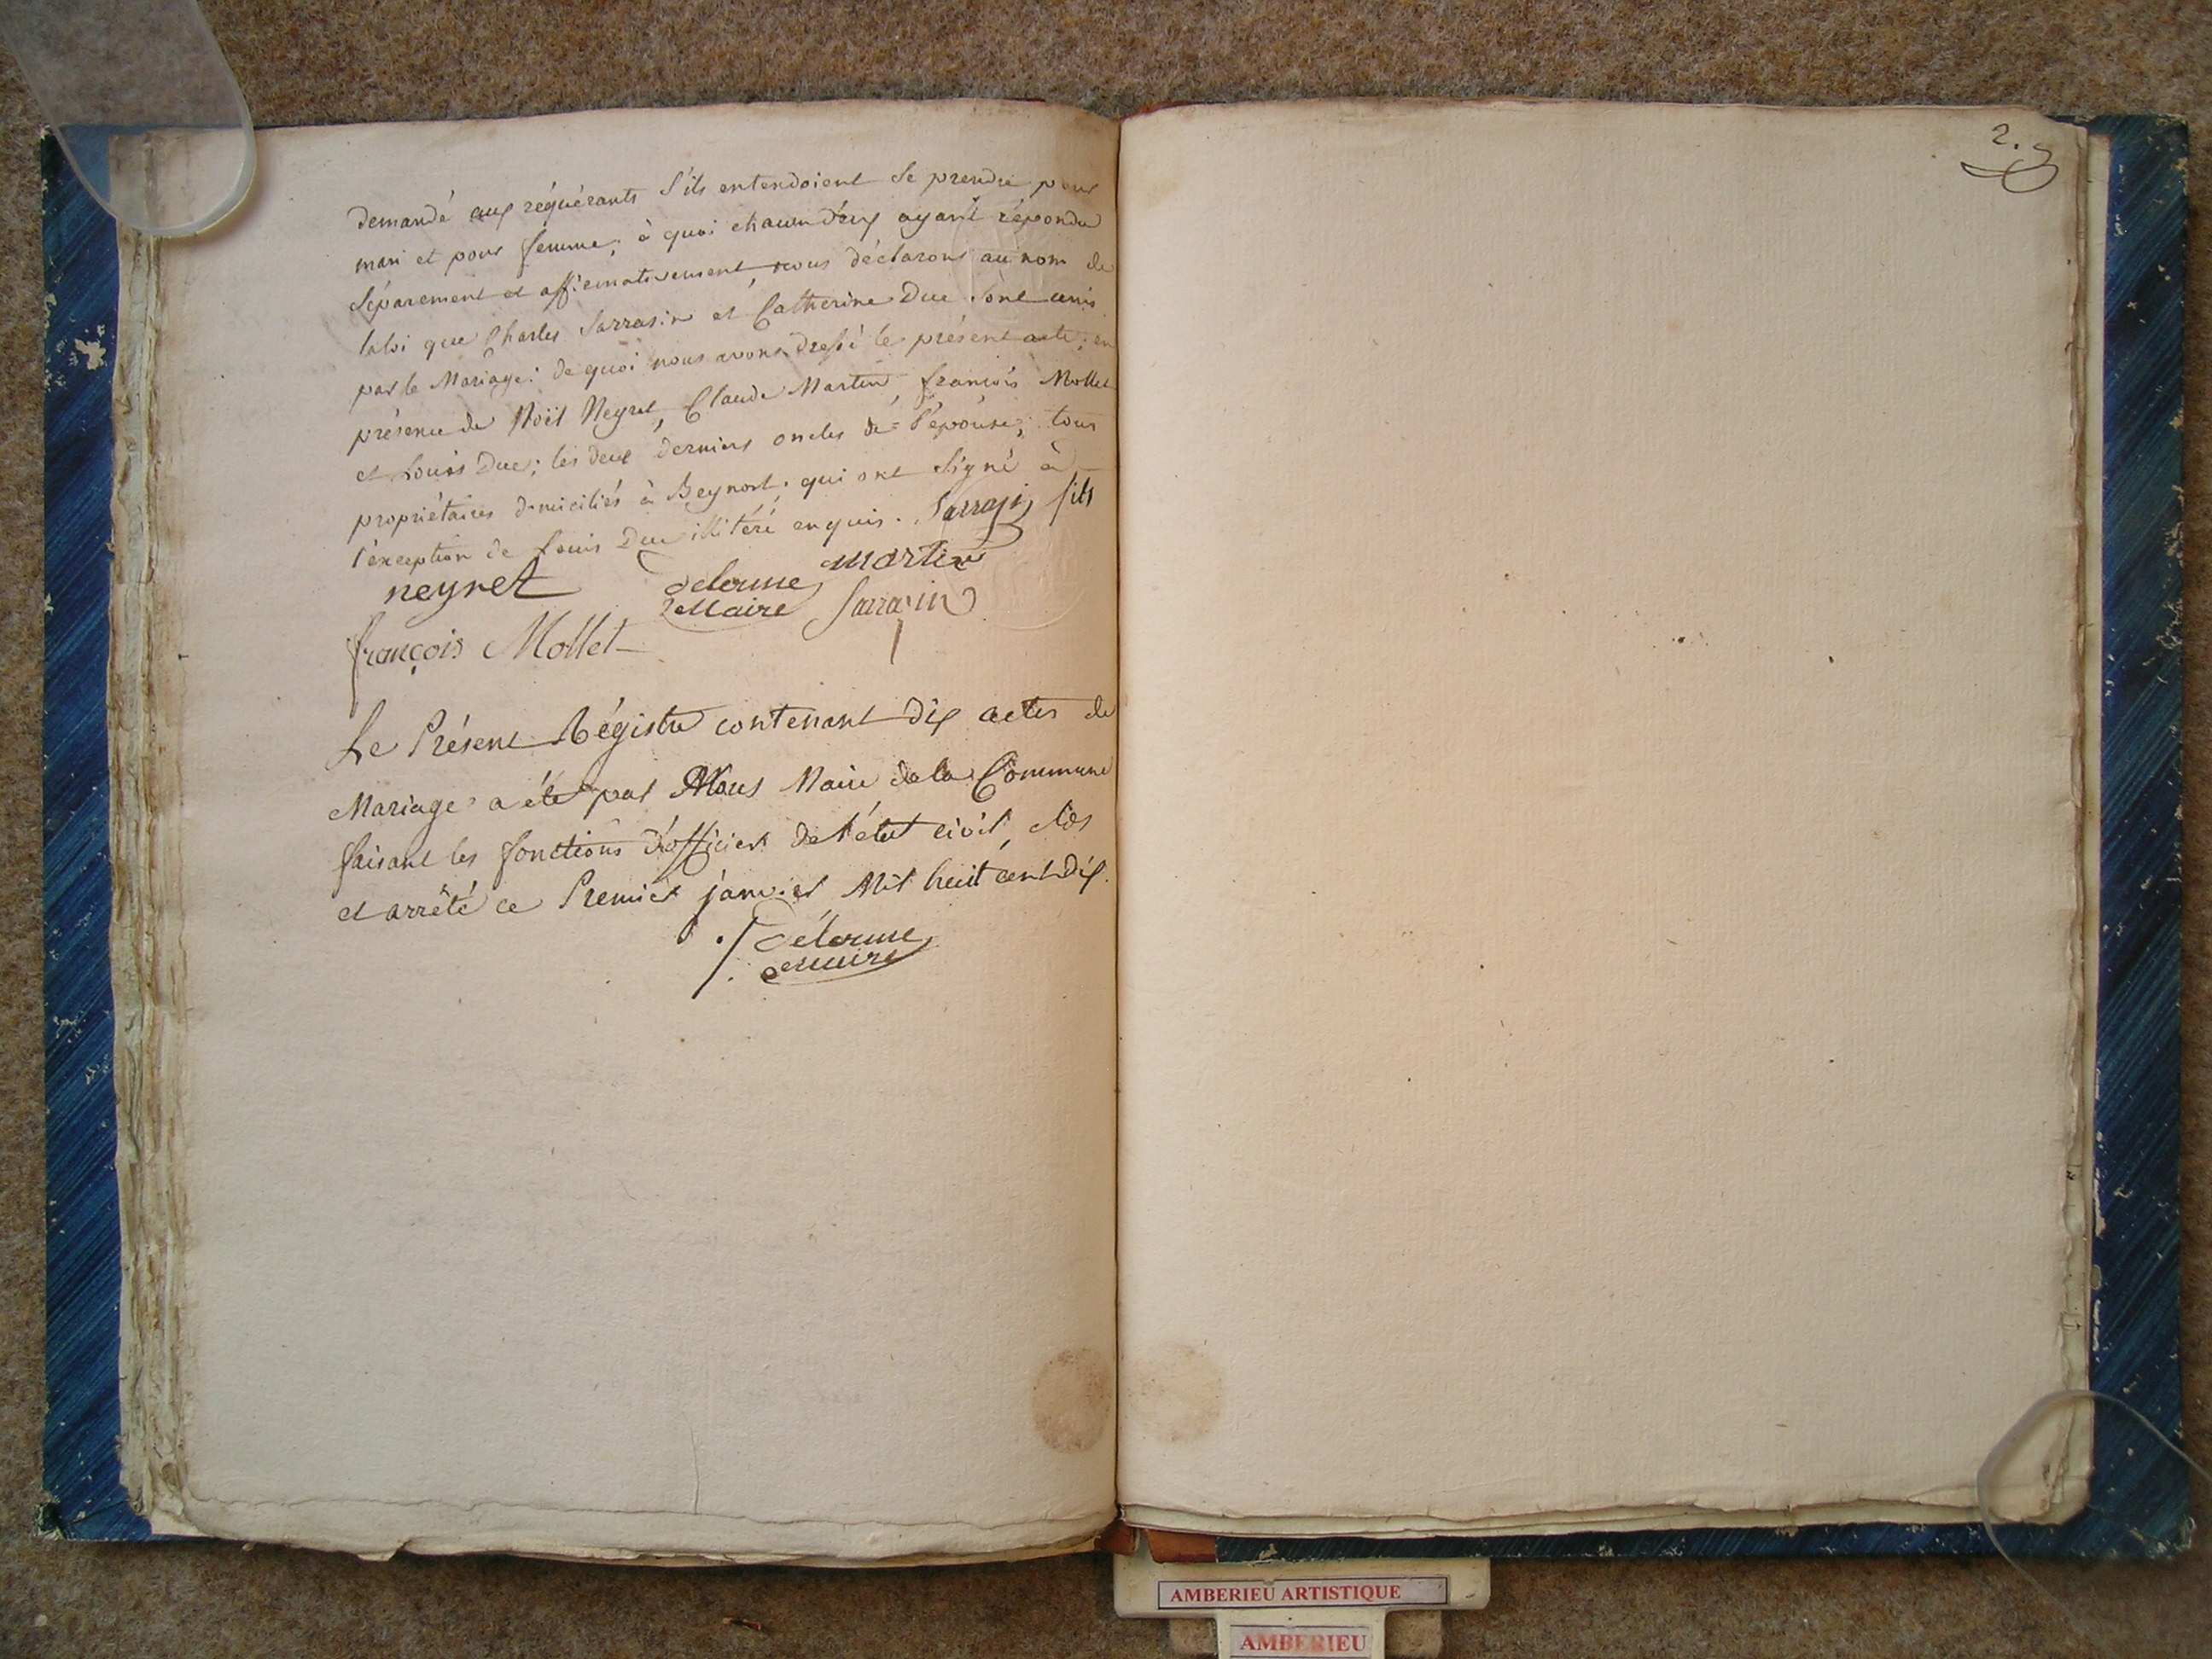 demandé aux réquérants s'ils entendoient se prendre pour
mari et pour femme; à quoi chacun d'eux ayant répondu
séparement et affirmativement, nous déclarons au nom de
laloi que Charles Sarrasin et Catherine Duc sont unis
par le Mariage: de quoi nous avons dressé le présent acte; en
présence de Noël Neyret, Claude Martin, françois Mollet
et Louis Duc; les deux derniers oncles de l'épouse; tous
propriétaires domiciliés à Beynost. qui ont signé à
l'exception de Louis Duc illitéré enquis. Sarrasin fils
neyret delorme martin
maire Sarrasin
françois Mollet
Le Présent Régistre contenant dix actes de
Mariage a été par Nous Maire de la Commune
faisant les fonctions d'officier de l'état civil, clos
et arrêté ce Premier janvier Mil huit cent dix.
delorme
maire
2.
AMBERIEU ARTISTIQUE
AMBERIEU